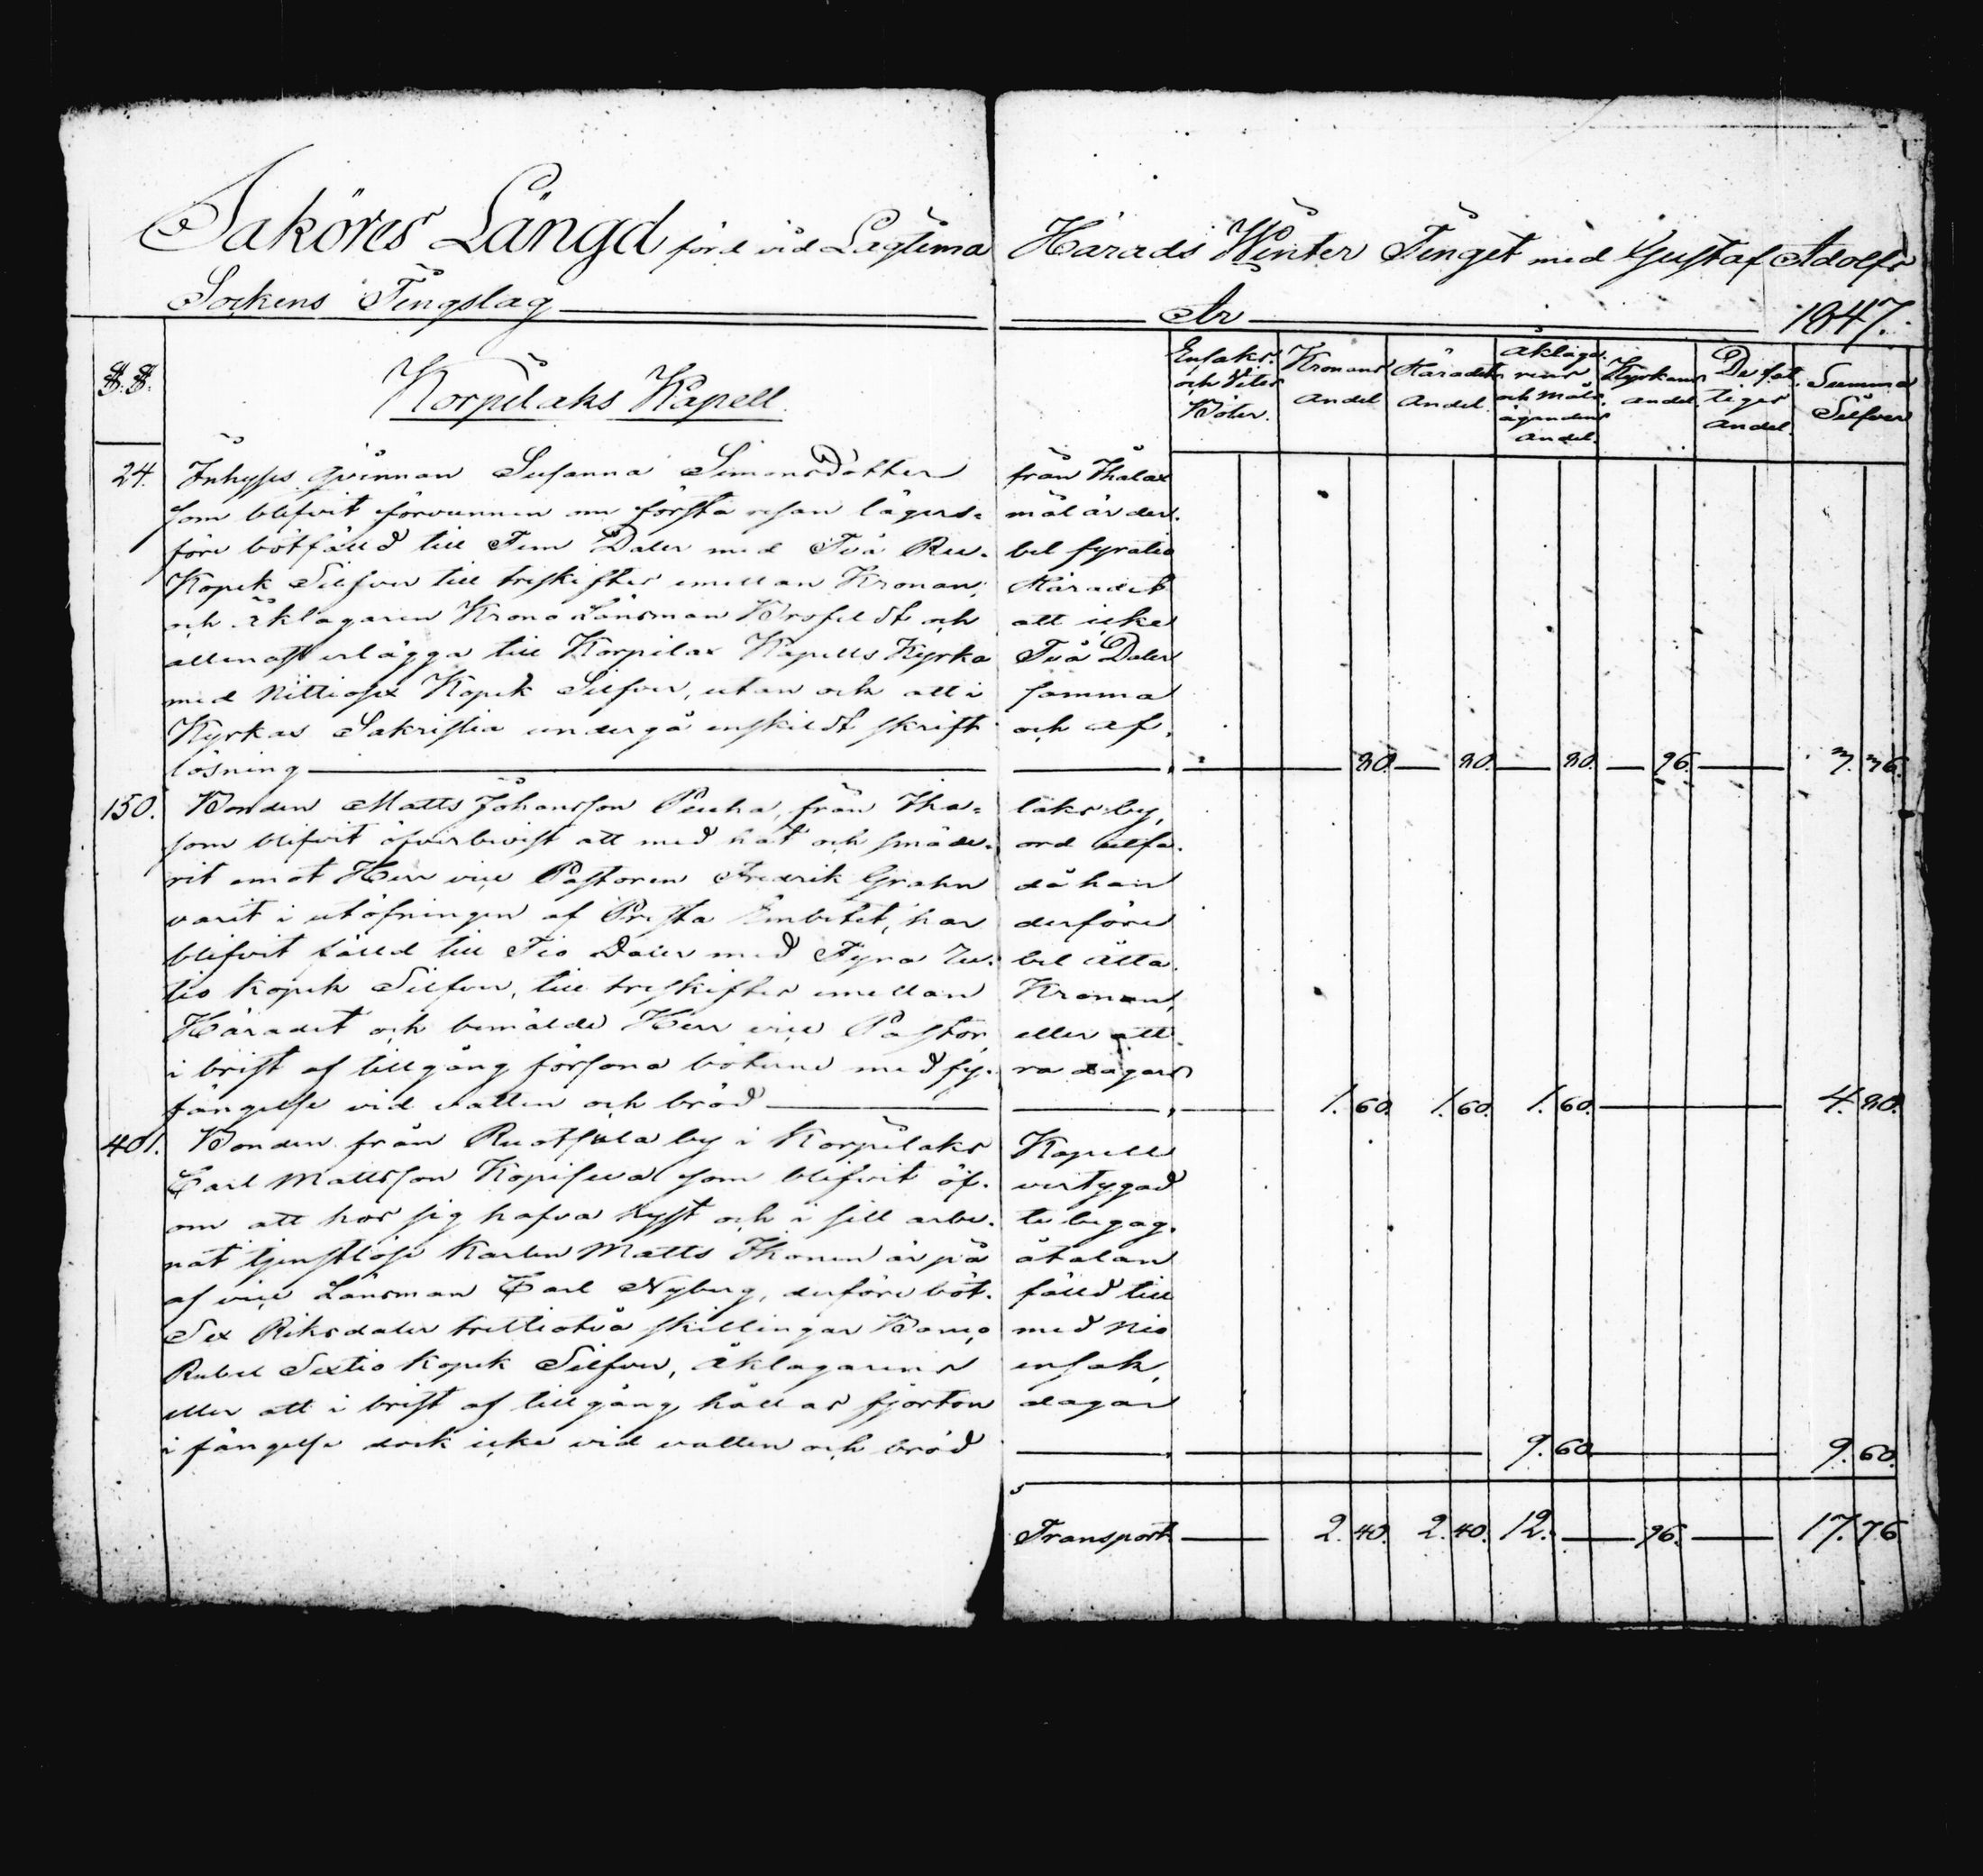 Saköres Längd förd vid Lagtima Härads Winter Tinget med Gustaf Adolfs
Sockens Tingslag År 1847.
§.§. Korpilaks Kapell Ensaks och Vites Böter. Kronans Andel Häradets Andel. Åklagarens och Målsägandens Andel. Kyrkans andel. De fattigas andel. Summa Silfver
24. Inhyses qvinnan Susanna Simonsdotter från Ihalax
som blifvit förvunnen om första resan lägers- mål är der-
före bötfälld till Fem Daler med Två Ru- bel fyratio
Kopek Silfver till treskiftes emellan Kronan, Häradet
och Åklagaren Krono Länsman Brofeldt och att icke
allenast erlägga till Korpilax Kapells Kyrka Två Daler
med Nittiosex Kopek Silfver, utan och att i samma
Kyrkas Sakristia undergå enskildt skrift och af-
lösning 80. 80. 80. 96. 3.36.
150. Bonden Matts Johansson Peuha, från Iha- laks by,
som blifvit öfverbevist att med hot och smäde- ord utfa-
rit emot Herr vice Pastoren Fredrik Grahn då han
varit i utöfningen af Presta Embetet, har derföre
blifvit fälld till Tio Daler med Fyra Ru- bel Åtta-
tio Kopek Silfver, till treskiftes emellan Kronan,
Häradet och bemälde Herr vice Pastor, eller att
i brist af tillgång försona böterne med fy- ra dagars
fängelse vid vatten och bröd 1.60. 1.60. 1.60. 4.80.
401. Bonden från Ruotsula by i Korpilaks Kapell
Carl Mattsson Kopiseva som blifvit öf- vertygad
om att hos sig hafva hyst och i sitt arbe- te begag-
nat tjenstlöse Karlen Matts Ikonen är på åtalan
af vice Länsman Carl Nyberg, derföre böt- fälld till
Sex Riksdaler trettiotvå skillingar Banco med Nio
Rubel Sextio Kopek Silfver, Åklagarens ensak,
eller att i brist af tillgång hållas fjorton dagar
i fängelse dock icke vid vatten och bröd 9.60. 9.60.
Transport 2.40. 2.40. 12. 96. 17.76